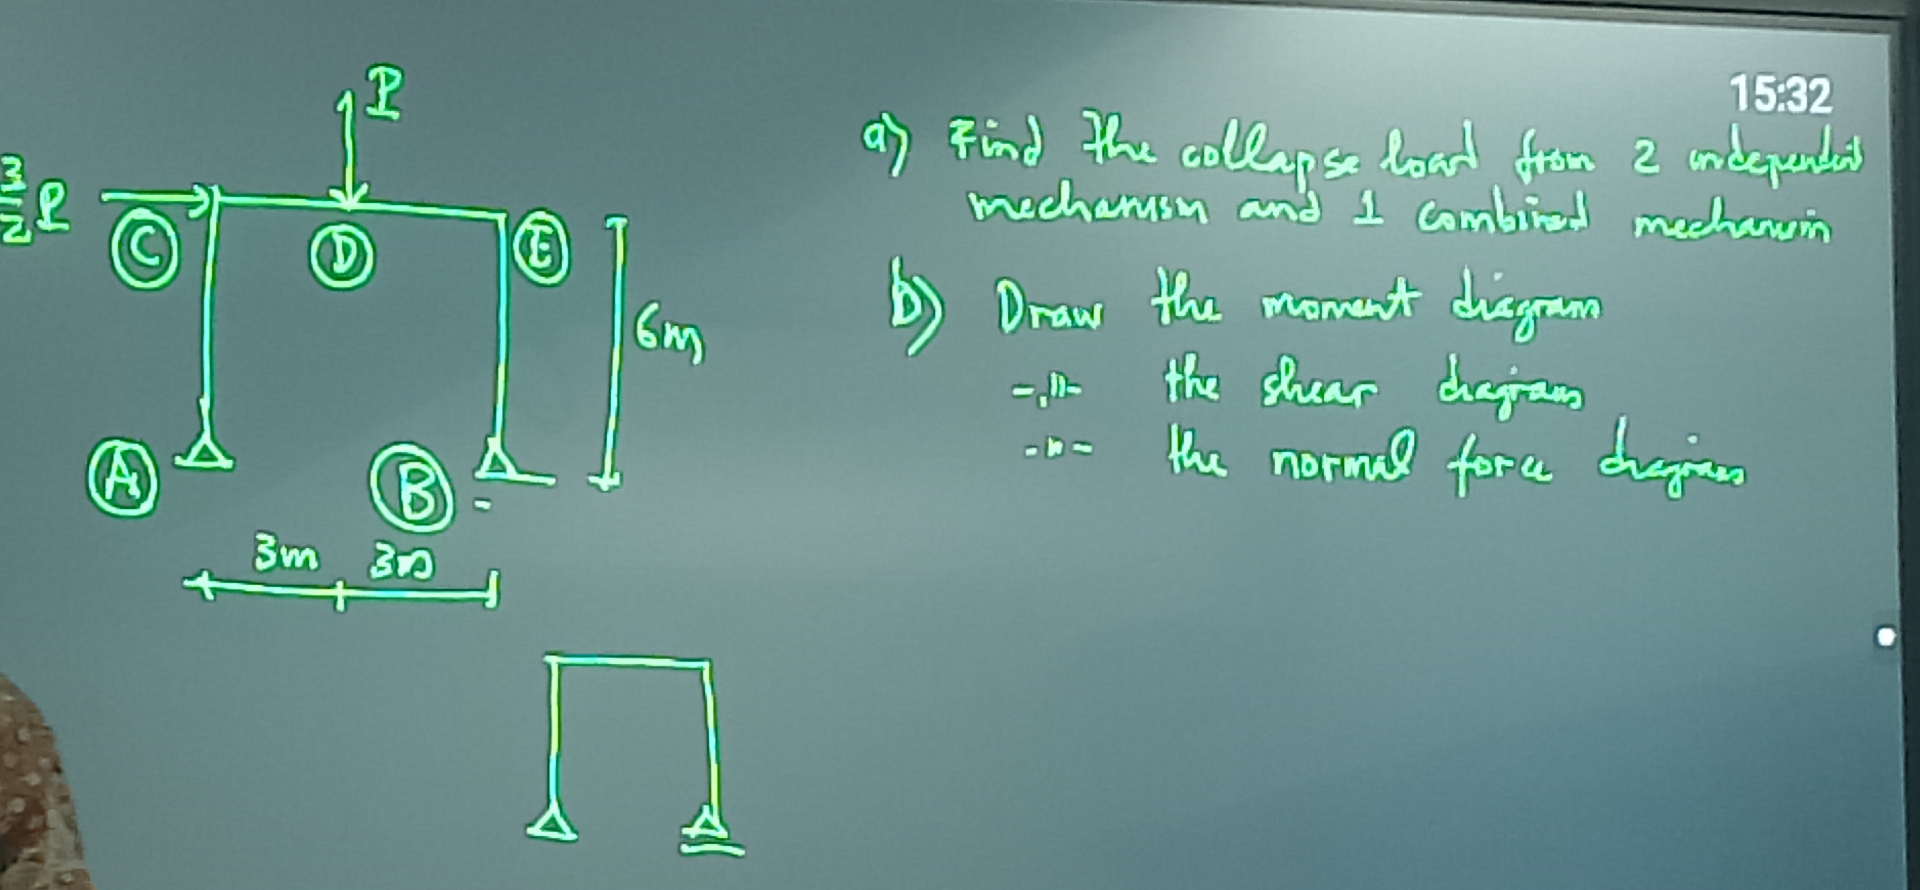 15:32
P
3/2 P
C
D
E
6m
A
B
3m 3m
a) Find the collapse load from 2 independent
mechanism and 1 combined mechanism
b) Draw the moment diagram
-"- the shear diagram
-"- the normal force diagram